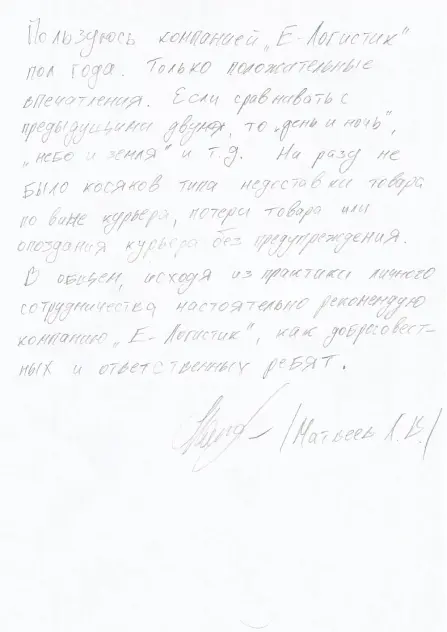 Пользуюсь компанией „Е-Логистик"
пол года. Только положительные
впечатления. Если сравнивать с
предыдущими двумя, то „день и ночь",
„небо и земля" и т.д. Ни разу не
было косяков типа недоставки товара
по вине курьера, потери товара или
опоздания курьера без предупреждения.
В общем, исходя из практики личного
сотрудничества настоятельно рекомендую
компанию „Е-Логистик", как добросовест-
ных и ответственных ребят.
/Матвеев А.В./